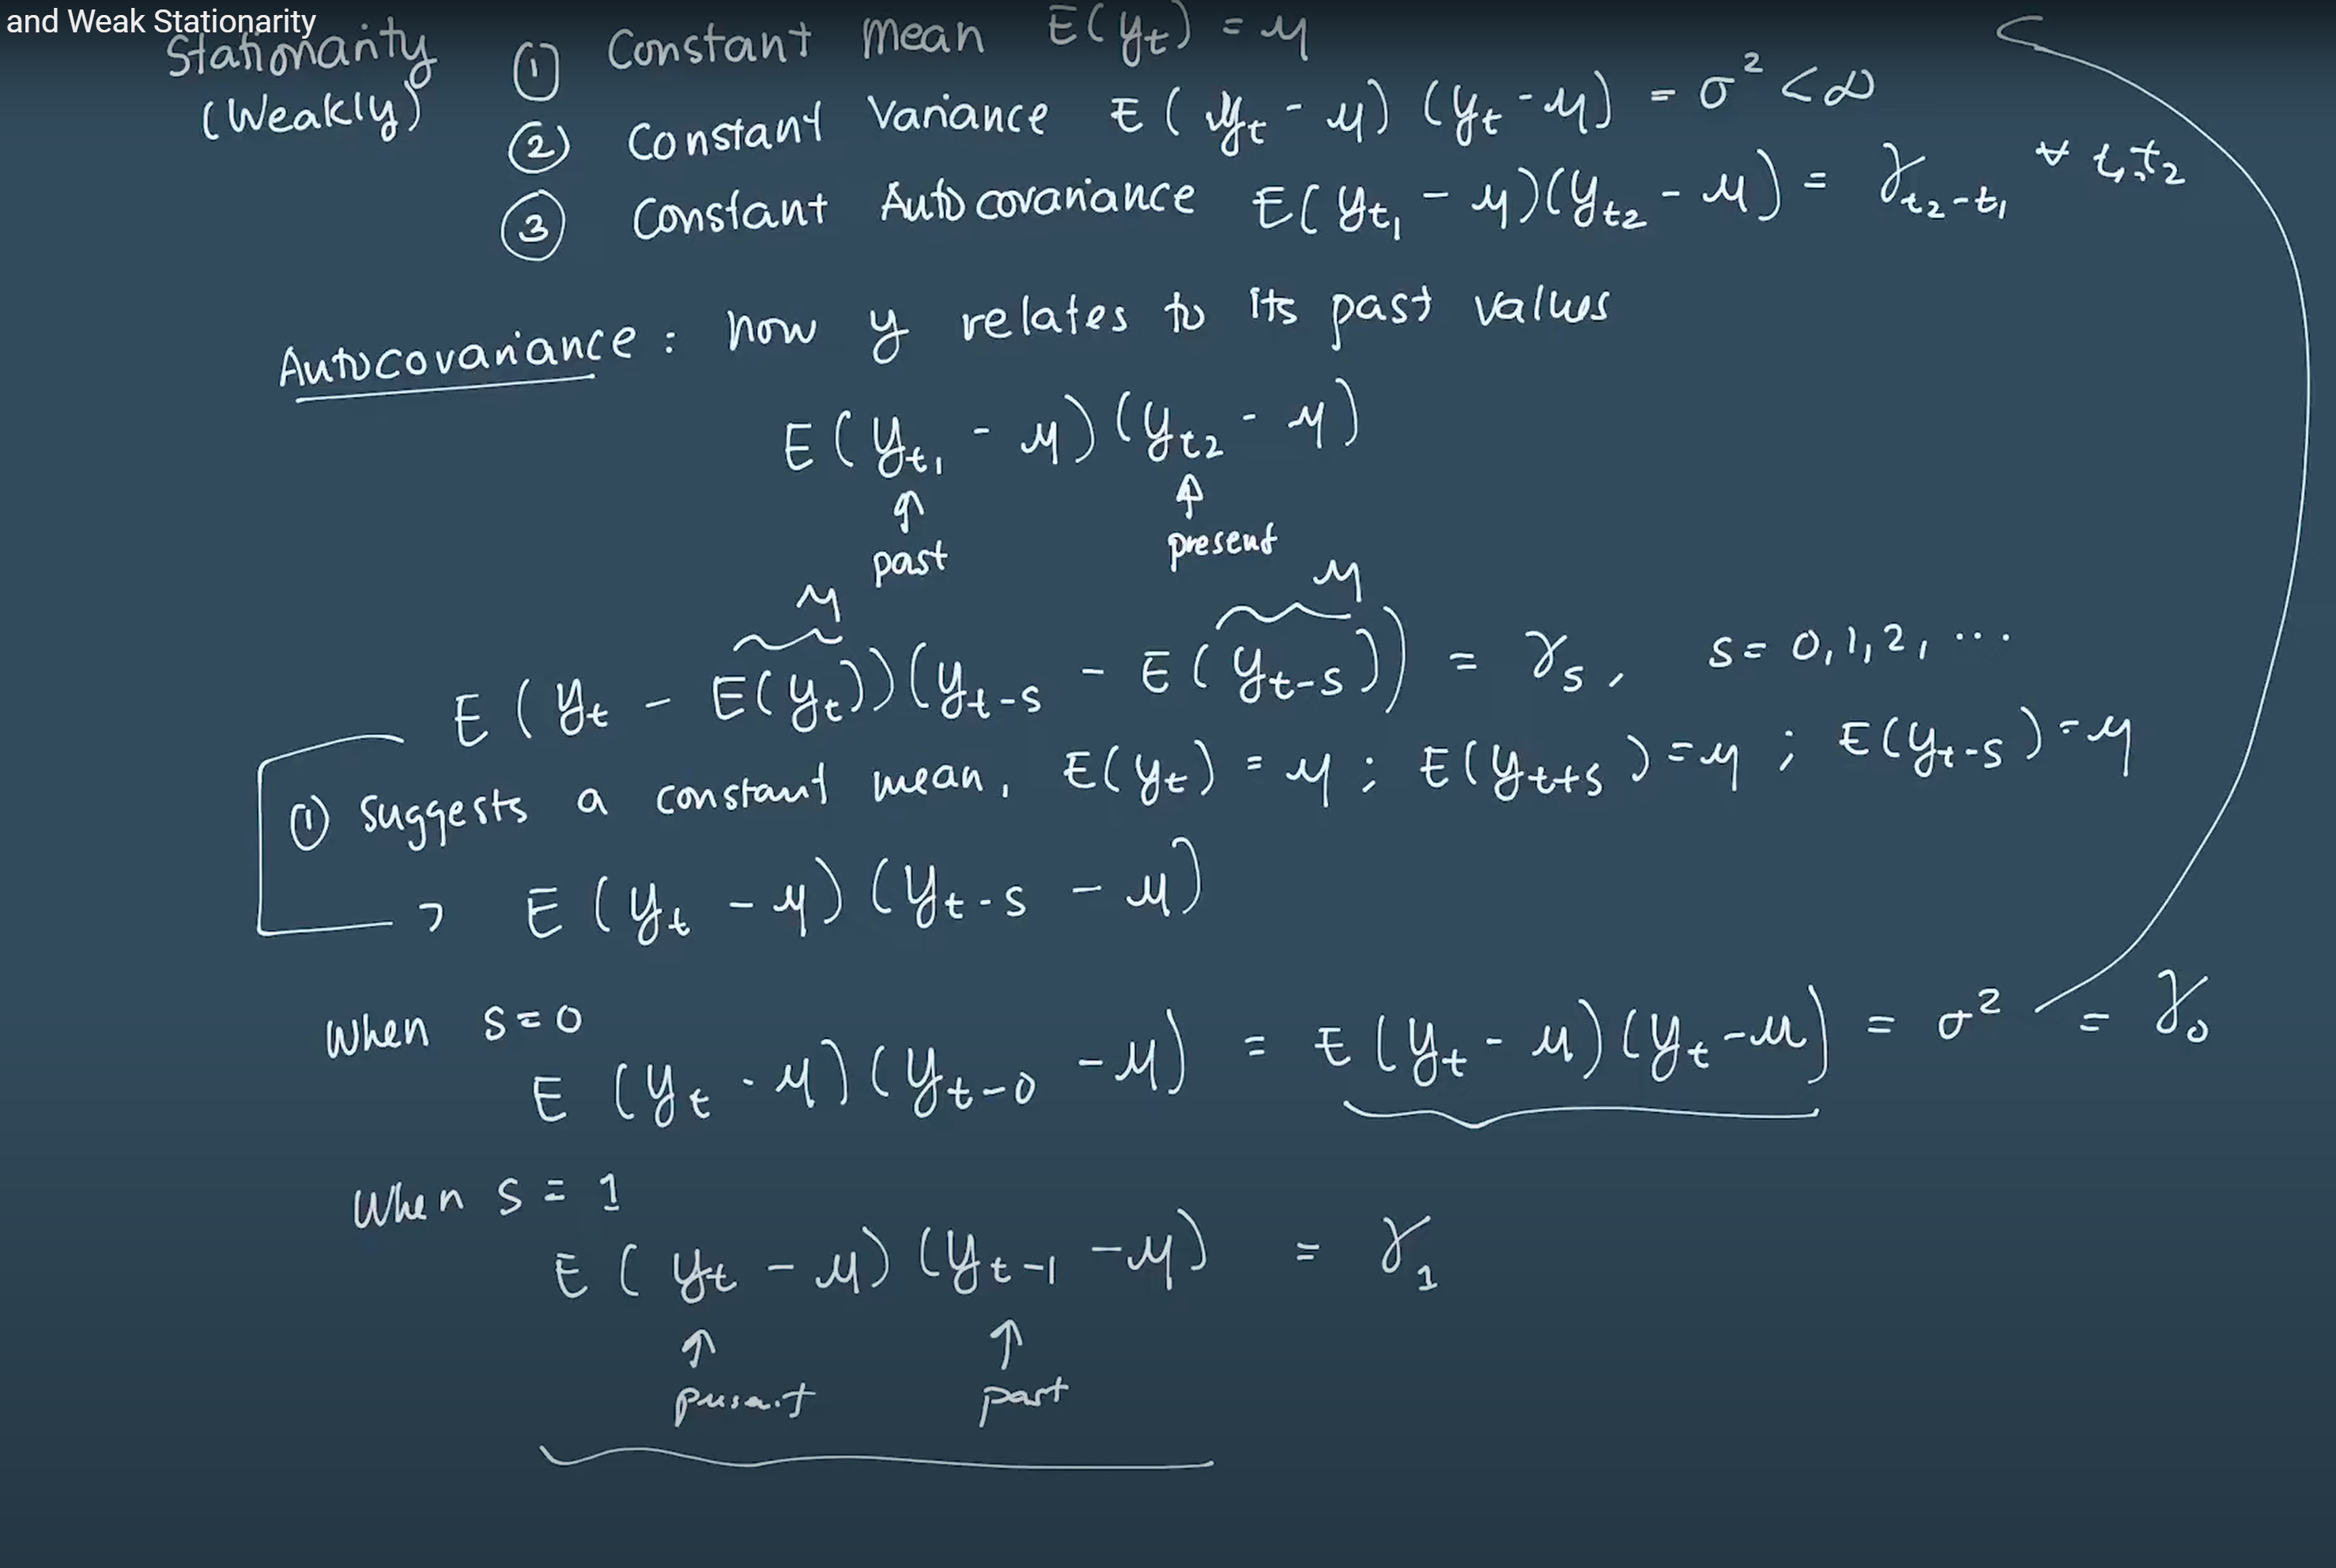 and Weak Stationarity
Stationarity (Weakly)
① Constant mean E(yₜ) = μ
② Constant Variance E(yₜ - μ)(yₜ - μ) = σ² < ∞
③ Constant Autocovariance E(y_t₁ - μ)(y_t₂ - μ) = γ_t₂-t₁ ∀ t₁, t₂
Autocovariance : how y relates to its past values
E(y_t₁ - μ)(y_t₂ - μ)
↑ ↑
past present
μ μ
E(yₜ - E(yₜ))(yₜ₋ₛ - E(yₜ₋ₛ)) = γₛ, s = 0, 1, 2, ...
① suggests a constant mean, E(yₜ) = μ ; E(yₜ₊ₛ) = μ ; E(yₜ₋ₛ) = μ
→ E(yₜ - μ)(yₜ₋ₛ - μ)
When s = 0
E(yₜ - μ)(yₜ₋₀ - μ) = E(yₜ - μ)(yₜ - μ) = σ² = γ₀
When s = 1
E(yₜ - μ)(yₜ₋₁ - μ) = γ₁
↑ ↑
present past